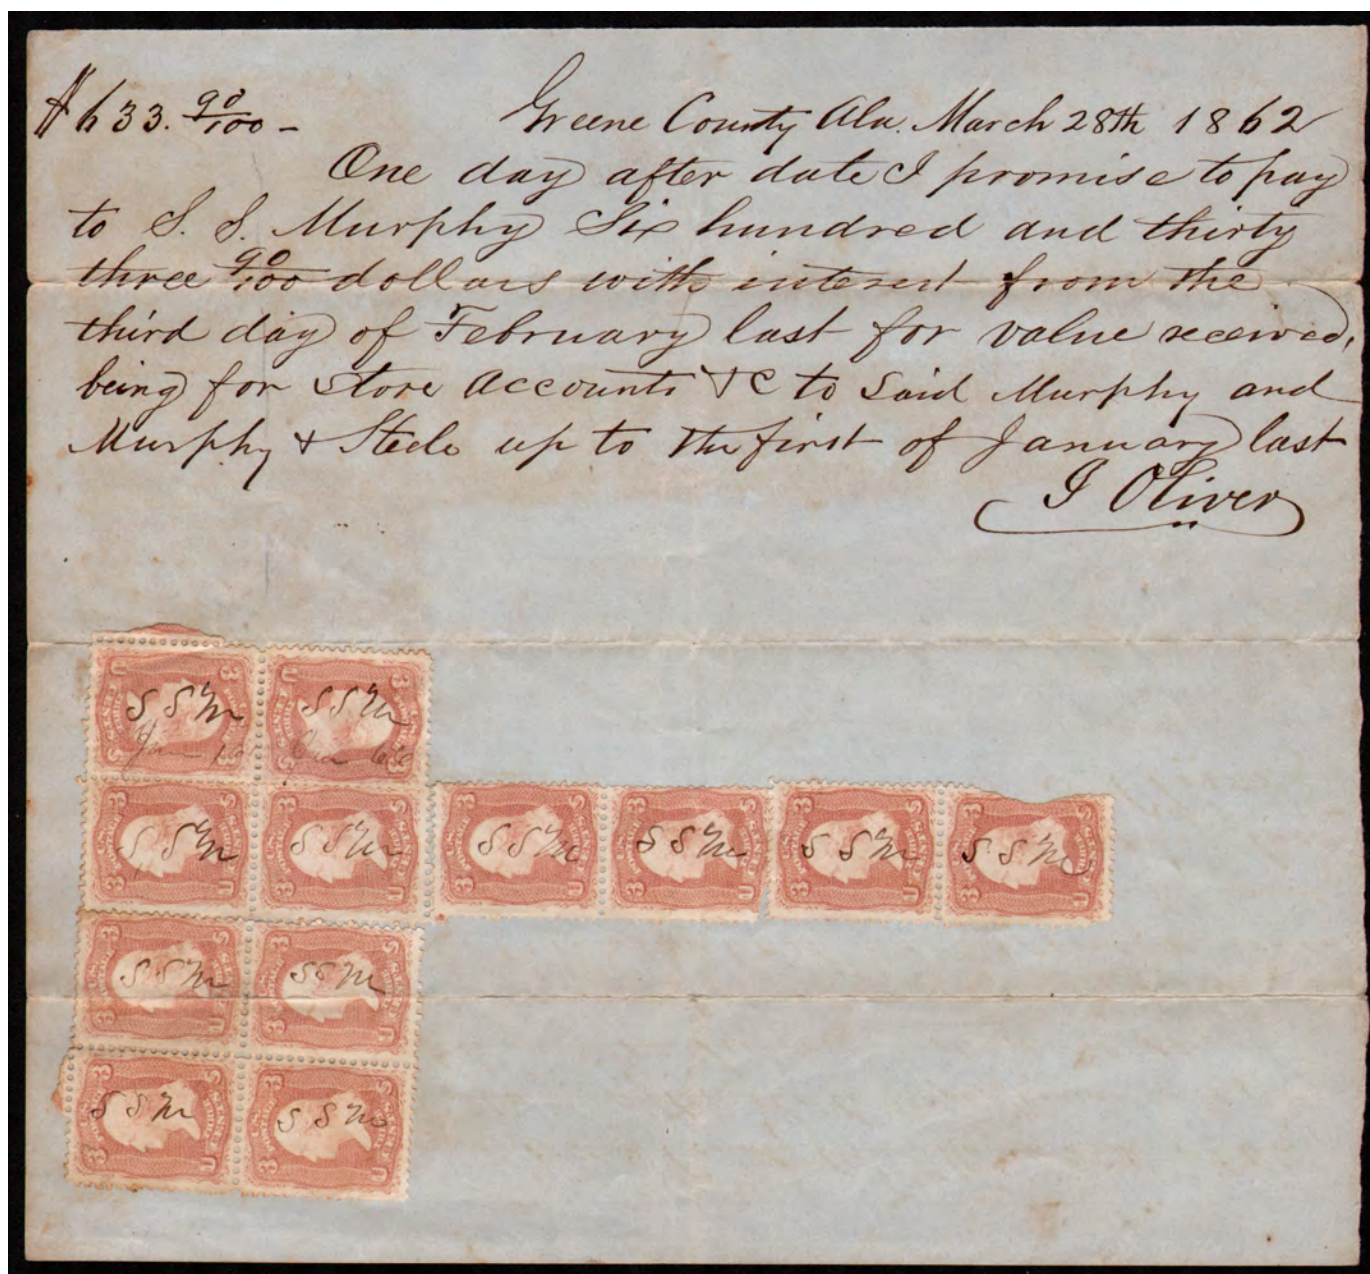 $633. 90/100 -
Greene County Ala. March 28th 1862
One day after date I promise to pay
to S. S. Murphy Six hundred and thirty
three 90/100 dollars with interest from the
third day of February last for value received,
being for Store Accounts &C to Said Murphy and
Murphy & Steele up to the first of January last
J Oliver
S S M
S S M
Jan 1st
Jan 66
S S M
S S M
S S M
S S M
S S M
S S M
S S M
S S M
S S M
S S M